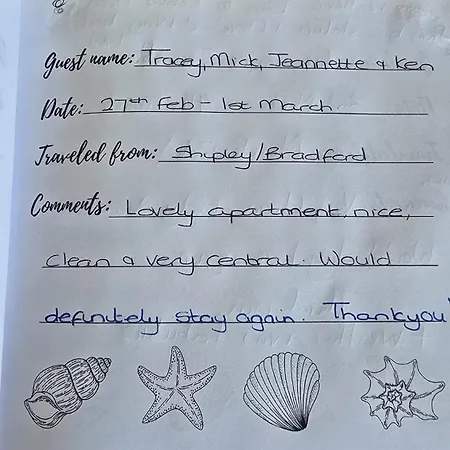 Guest name: Tracey, Mick, Jeannette & Ken
Date: 27th Feb - 1st March
Traveled from: Shipley/Bradford
Comments: Lovely apartment, nice,
clean & very central. Would
definitely stay again. Thankyou!